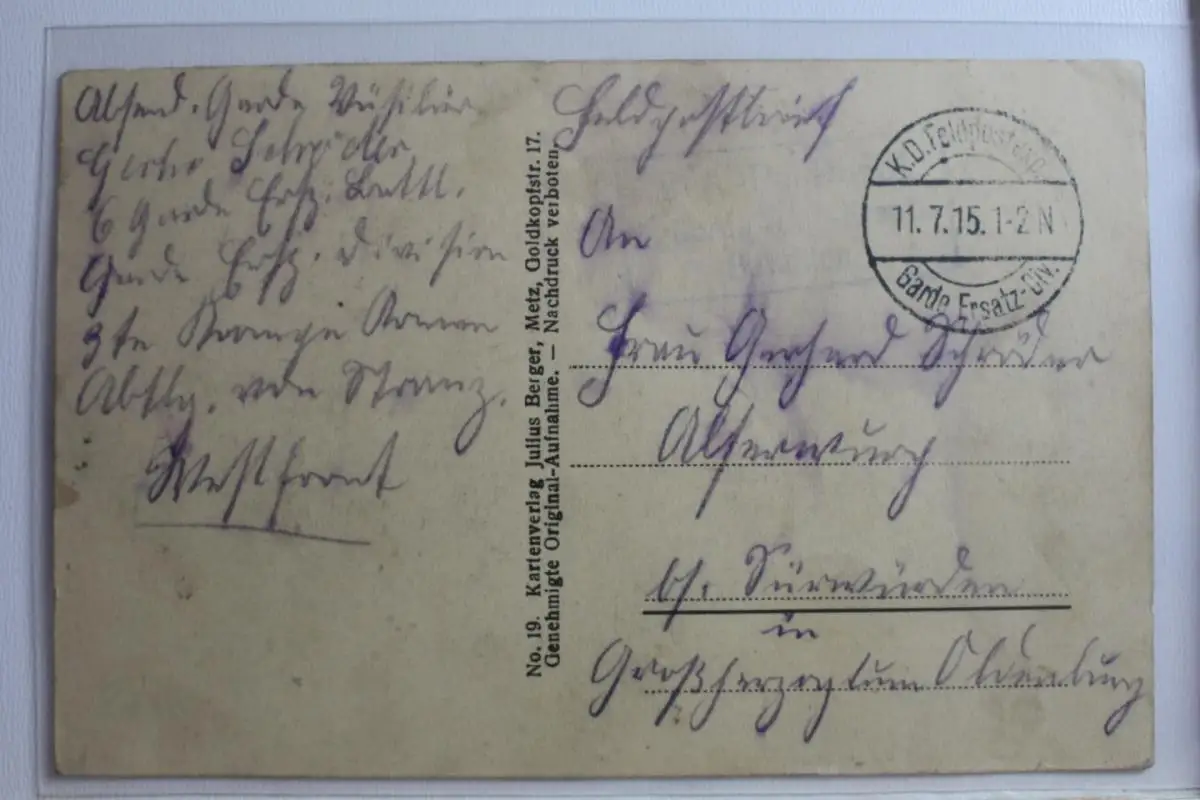 Absend. Garde Füsilier
Gerho Schröder
6 Garde Ersz. Battl.
Garde Ersz. Division
3te Armee
Abtlg. von Stranz.
Westfront
No. 19. Kartenverlag Julius Berger, Metz, Goldkopfstr. 17.
Genehmigte Original-Aufnahme. — Nachdruck verboten.
Feldpostbrief
K.D. Feldpostexp.
11.7.15. 1-2 N
Garde Ersatz-Div.
An
Frau Gerhard Schröder
Alserwurp
bs. Sürwürden
in
Großherzogtum Oldenburg